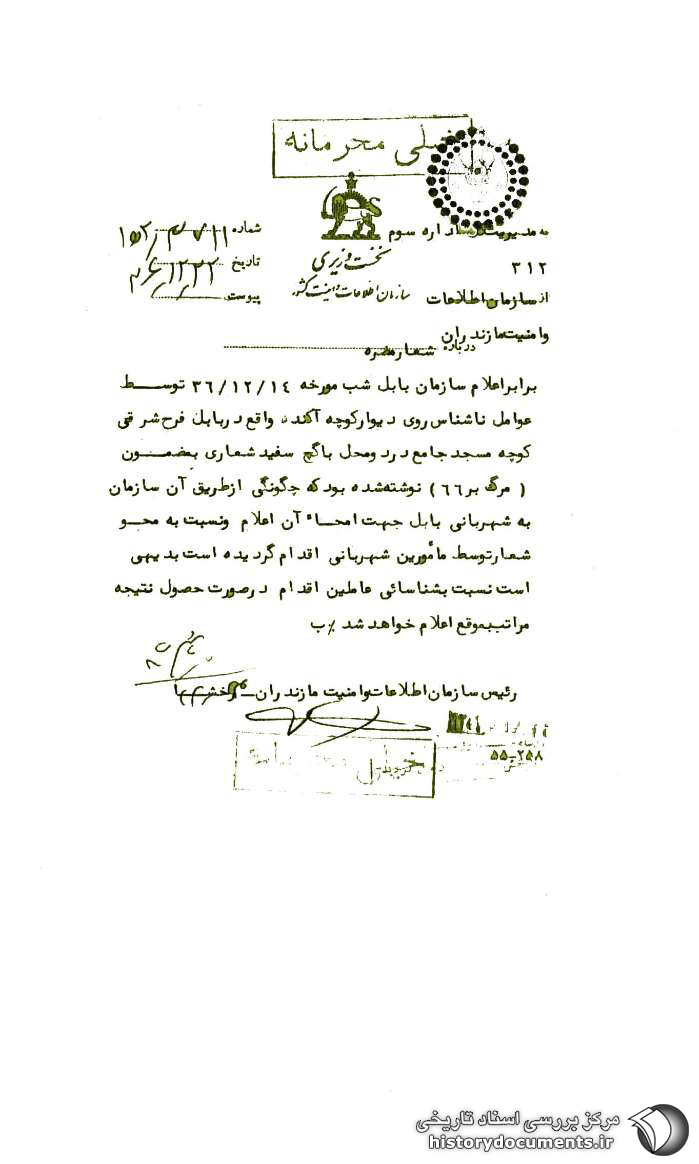 خیلی محرمانه
به مدیریت کل اداره سوم
۳۱۲
از سازمان اطلاعات
و امنیت مازندران
درباره شعار مضره
نخست وزیری
سازمان اطلاعات و امنیت کشور
شماره
تاریخ ۳۶/۱۲/۲۲
پیوست
برابر اعلام سازمان بابل شب مورخه ۳۶/۱۲/۱۴ توسط
عوامل ناشناس روی دیوار کوچه آکنده واقع در بابل فرح شرقی
کوچه مسجد جامع در دو محل با گچ سفید شعاری بمضمون
( مرگ بر ۶۶ ) نوشته شده بود که چگونگی از طریق آن سازمان
به شهربانی بابل جهت امحاء آن اعلام و نسبت به محو
شعار توسط مأمورین شهربانی اقدام گردیده است بدیهی
است نسبت بشناسائی عاملین اقدام در صورت حصول نتیجه
مراتب بموقع اعلام خواهد شد ٪ ب
رئیس سازمان اطلاعات و امنیت مازندران
۵۵-۲۵۸
مرکز بررسی اسناد تاریخی
historydocuments.ir